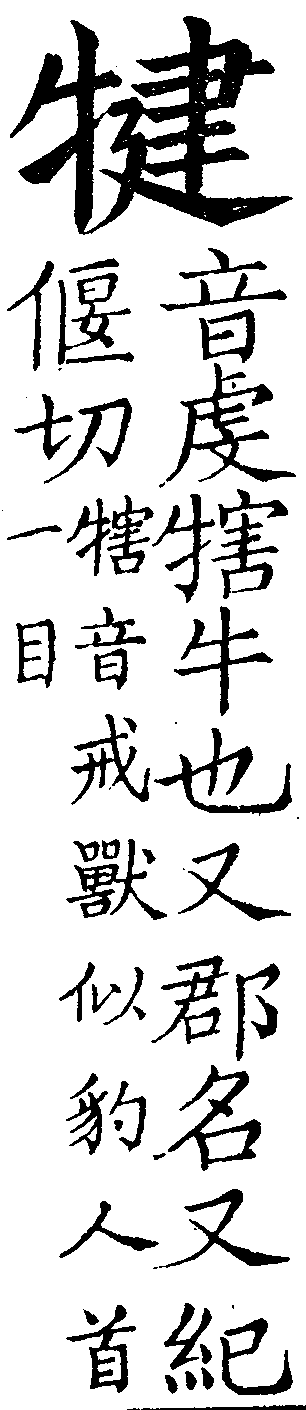 犍
音虔犗牛也又郡名又紀
偃切
犗音戒獸似豹人首
一目